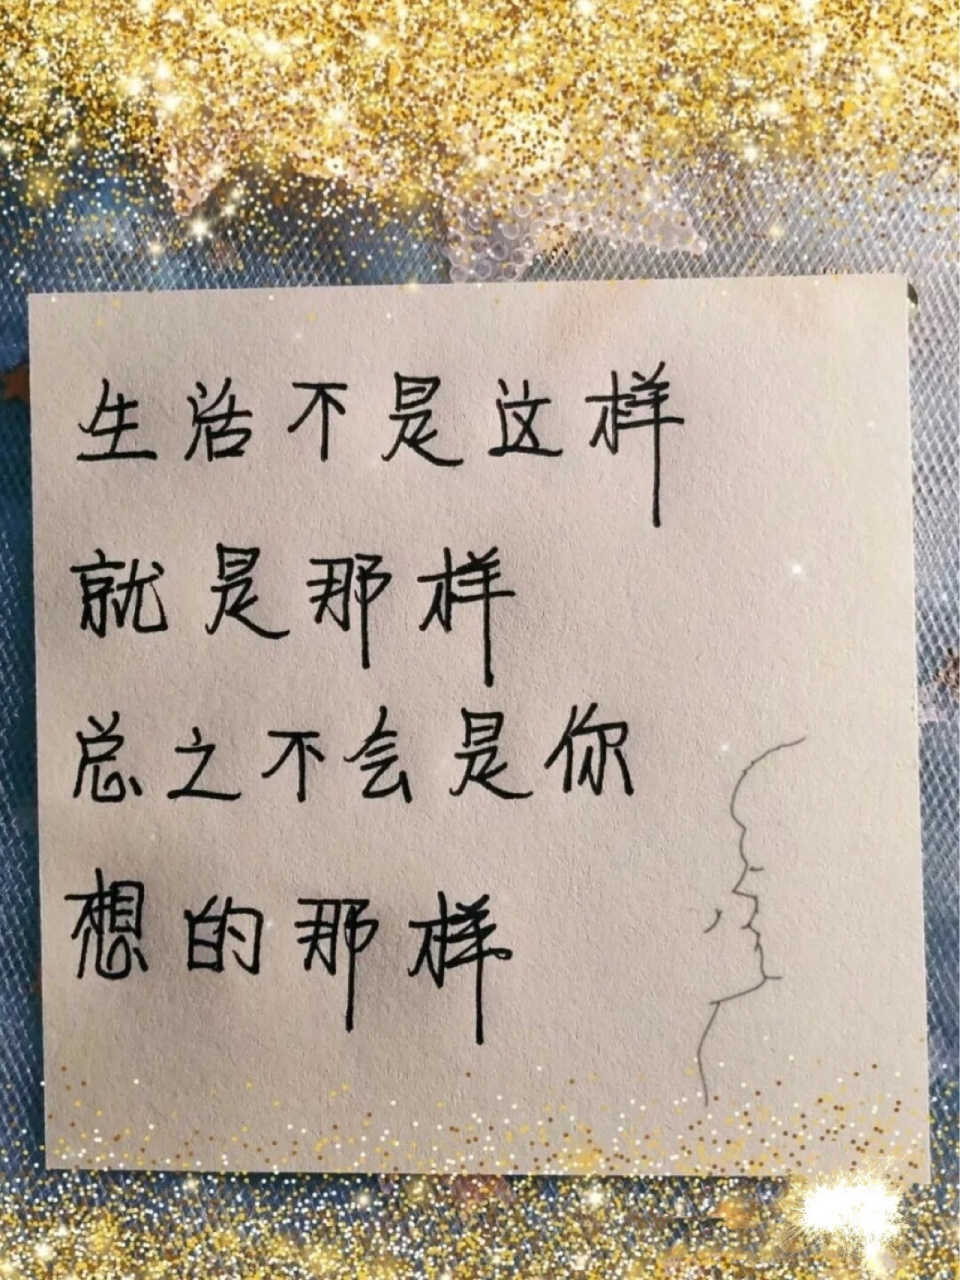 生活不是这样
就是那样
总之不会是你
想的那样